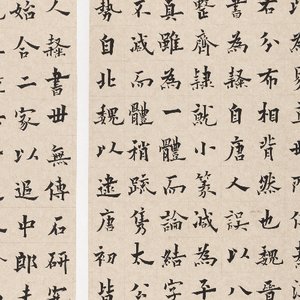 右分布相背然也魏晉
書為隸自唐人誤以八
整齊隸就小篆減為
真雖為一體而論結字
不減而體稍疏雋太公
勢自北魏以逮唐初皆
人隸書世無傳石研
始合二家以追中郎